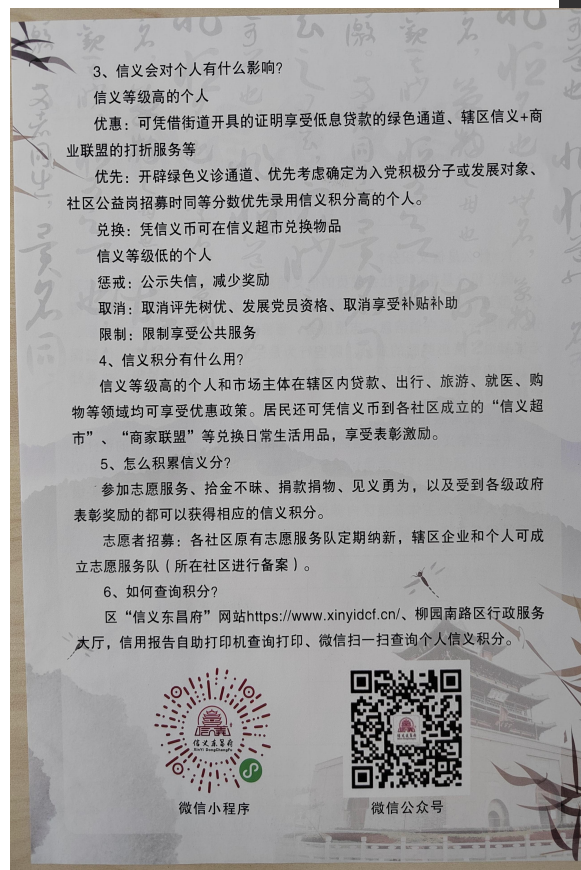 3、信义会对个人有什么影响?
信义等级高的个人
优惠：可凭借街道开具的证明享受低息贷款的绿色通道、辖区信义+商
业联盟的打折服务等
优先：开辟绿色义诊通道、优先考虑确定为入党积极分子或发展对象、
社区公益岗招募时同等分数优先录用信义积分高的个人。
兑换：凭信义币可在信义超市兑换物品
信义等级低的个人
惩戒：公示失信，减少奖励
取消：取消评先树优、发展党员资格、取消享受补贴补助
限制：限制享受公共服务
4、信义积分有什么用?
信义等级高的个人和市场主体在辖区内贷款、出行、旅游、就医、购
物等领域均可享受优惠政策。居民还可凭信义币到各社区成立的“信义超
市”、“商家联盟”等兑换日常生活用品，享受表彰激励。
5、怎么积累信义分?
参加志愿服务、拾金不昧、捐款捐物、见义勇为，以及受到各级政府
表彰奖励的都可以获得相应的信义积分。
志愿者招募：各社区原有志愿服务队定期纳新，辖区企业和个人可成
立志愿服务队（所在社区进行备案）。
6、如何查询积分?
区“信义东昌府”网站https://www.xinyidcf.cn/、柳园南路区行政服务
大厅，信用报告自助打印机查询打印、微信扫一扫查询个人信义积分。
信义东昌府
XinYi DongChangFu
微信小程序
微信公众号